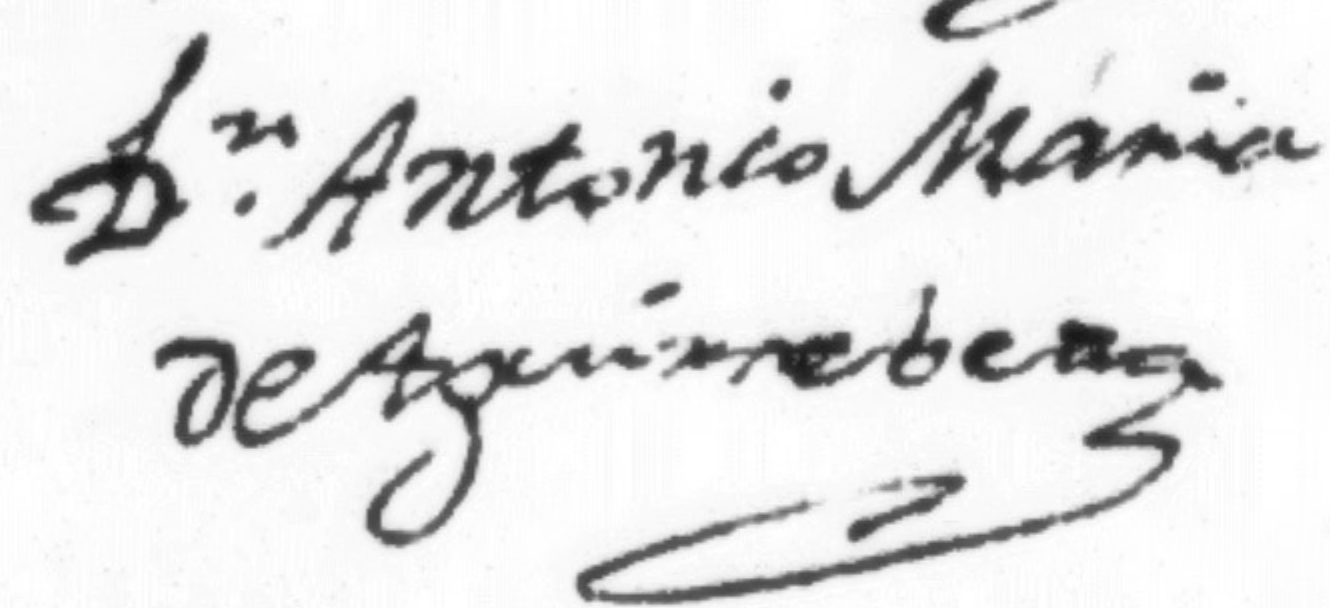 Dⁿ. Antonio Maria
de Aguirrebena